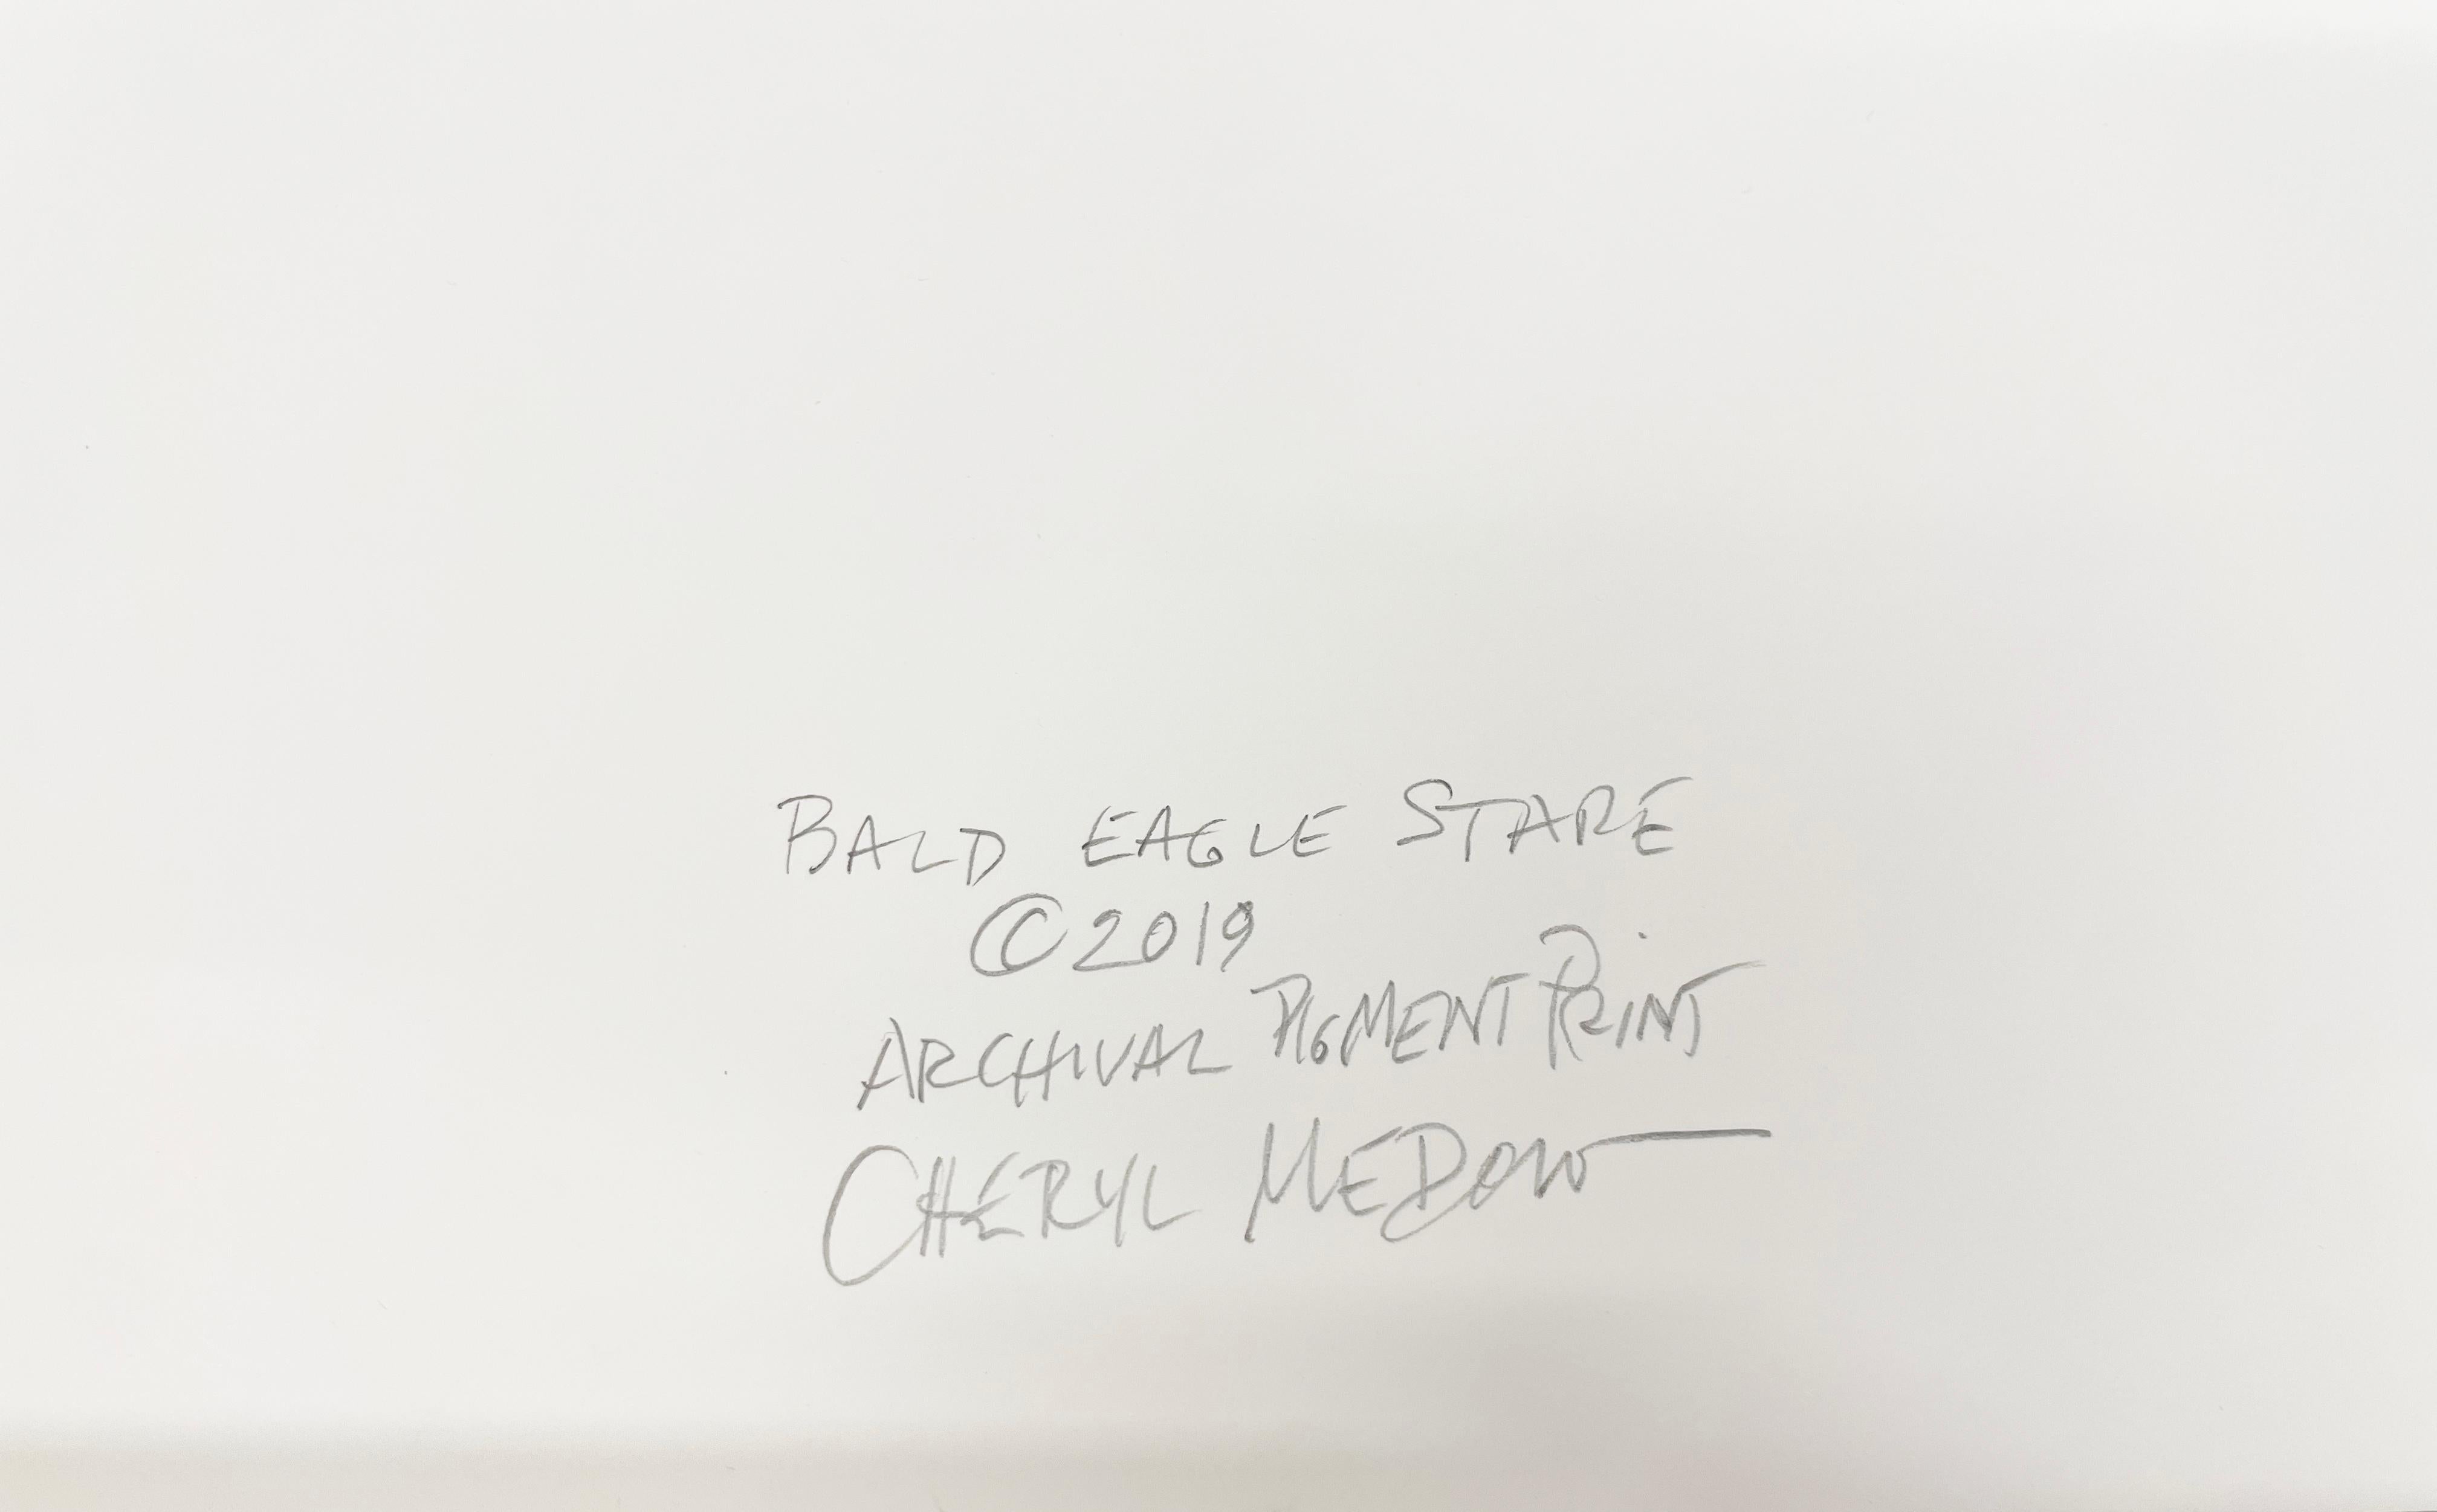 BALD EAGLE STARE
©2019
ARCHIVAL PIGMENT PRINT
CHERYL MEDOW